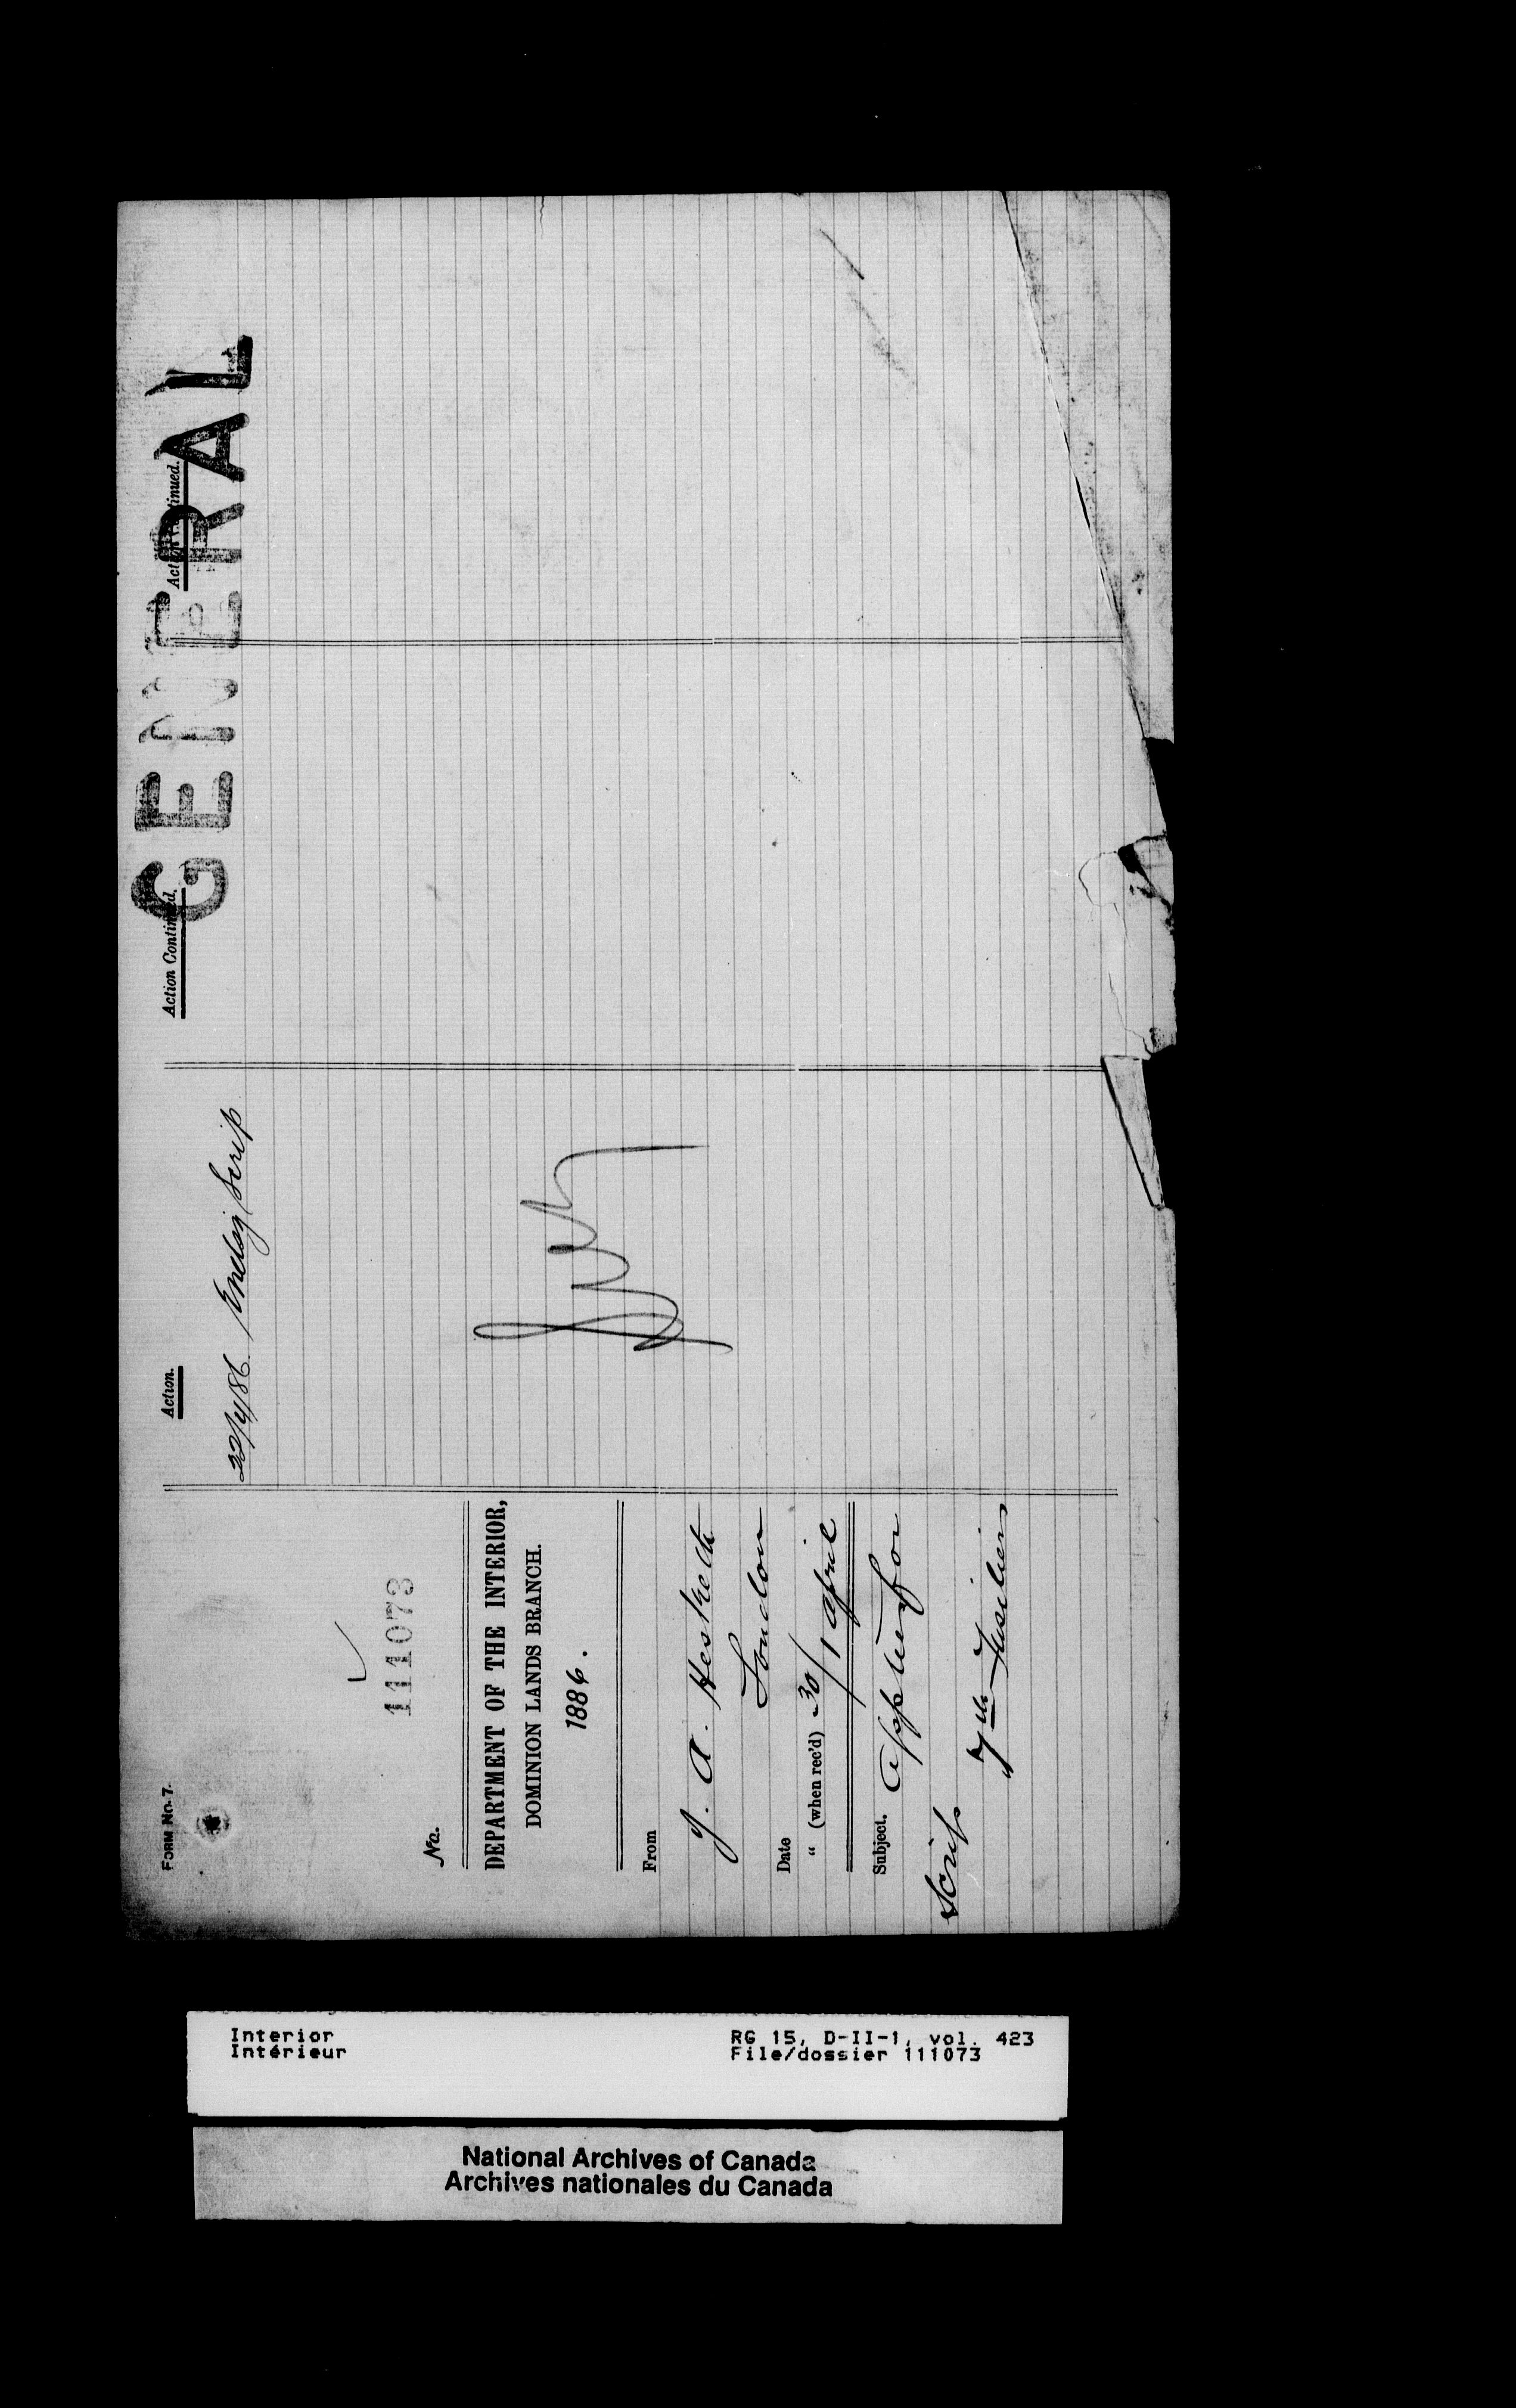 FORM No. 7.
111073
No.
DEPARTMENT OF THE INTERIOR,
DOMINION LANDS BRANCH.
1886.
From
J. A. Hesketh
London
Date
" (when rec'd) 30/1 April
Subject. Applic for
Scrip
7th Fusiliers
Action.
22/4/86. Enclos Scrip
Action Continued.
Action Continued.
GENERAL
Interior
Intérieur
RG 15, D-II-1, vol. 423
File/dossier 111073
National Archives of Canada
Archives nationales du Canada